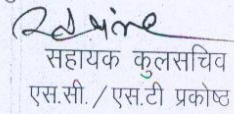 सहायक कुलसचिव
एस.सी. / एस.टी प्रकोष्ठ